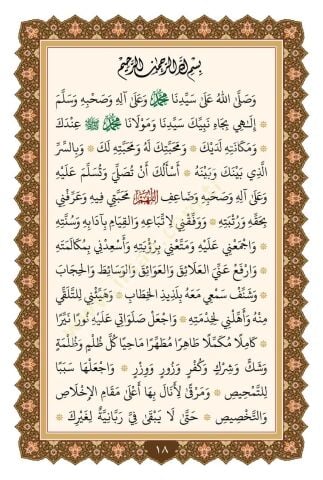 بِسْمِ اللَّهِ الرَّحْمَٰنِ الرَّحِيمِ
وَصَلَّى اللهُ عَلَى سَيِّدِنَا مُحَمَّدٍ وَعَلَى آلِهِ وَصَحْبِهِ وَسَلَّمَ
إِلَـٰهِي بِجَاهِ نَبِيِّكَ سَيِّدِنَا وَمَوْلَانَا مُحَمَّدٍ ﷺ عِنْدَكَ
وَمَكَانَتِهِ لَدَيْكَ ۞ وَمَحَبَّتِكَ لَهُ وَمَحَبَّتِهِ لَكَ ۞ وَبِالسِّرِّ
الَّذِي بَيْنَكَ وَبَيْنَهُ ۞ أَسْأَلُكَ أَنْ تُصَلِّيَ وَتُسَلِّمَ عَلَيْهِ
وَعَلَى آلِهِ وَصَحْبِهِ وَضَاعِفِ اللَّهُمَّ مَحَبَّتِي فِيهِ وَعَرِّفْنِي
بِحَقِّهِ وَرُتْبَتِهِ ۞ وَوَفِّقْنِي لِاتِّبَاعِهِ وَالقِيَامِ بِآدَابِهِ وَسُنَّتِهِ
۞ وَاجْمَعْنِي عَلَيْهِ وَمَتِّعْنِي بِرُؤْيَتِهِ وَأَسْعِدْنِي بِمُكَالَمَتِهِ
۞ وَارْفَعْ عَنِّي العَلَائِقَ وَالعَوَائِقَ وَالوَسَائِطَ وَالحِجَابَ
۞ وَشَنِّفْ سَمْعِي مَعَهُ بِلَذِيذِ الخِطَابِ ۞ وَهَيِّئْنِي لِلتَّلَقِّي
مِنْهُ وَأَهِّلْنِي لِخِدْمَتِهِ ۞ وَاجْعَلْ صَلَوَاتِي عَلَيْهِ نُورًا نَيِّرًا
۞ كَامِلًا مُكَمَّلًا طَاهِرًا مُطَهَّرًا مَاحِيًا كُلَّ ظُلْمٍ وَظُلْمَةٍ
وَشَكٍّ وَشِرْكٍ وَكُفْرٍ وَزُورٍ وَوِزْرٍ ۞ وَاجْعَلْهَا سَبَبًا
لِلتَّمْحِيصِ ۞ وَمَرْقًى لِأَنَالَ بِهَا أَعْلَى مَقَامِ الإِخْلَاصِ
وَالتَّخْصِيصِ ۞ حَتَّى لَا يَبْقَى فِيَّ رَبَّانِيَّةٌ لِغَيْرِكَ ۞
١٨